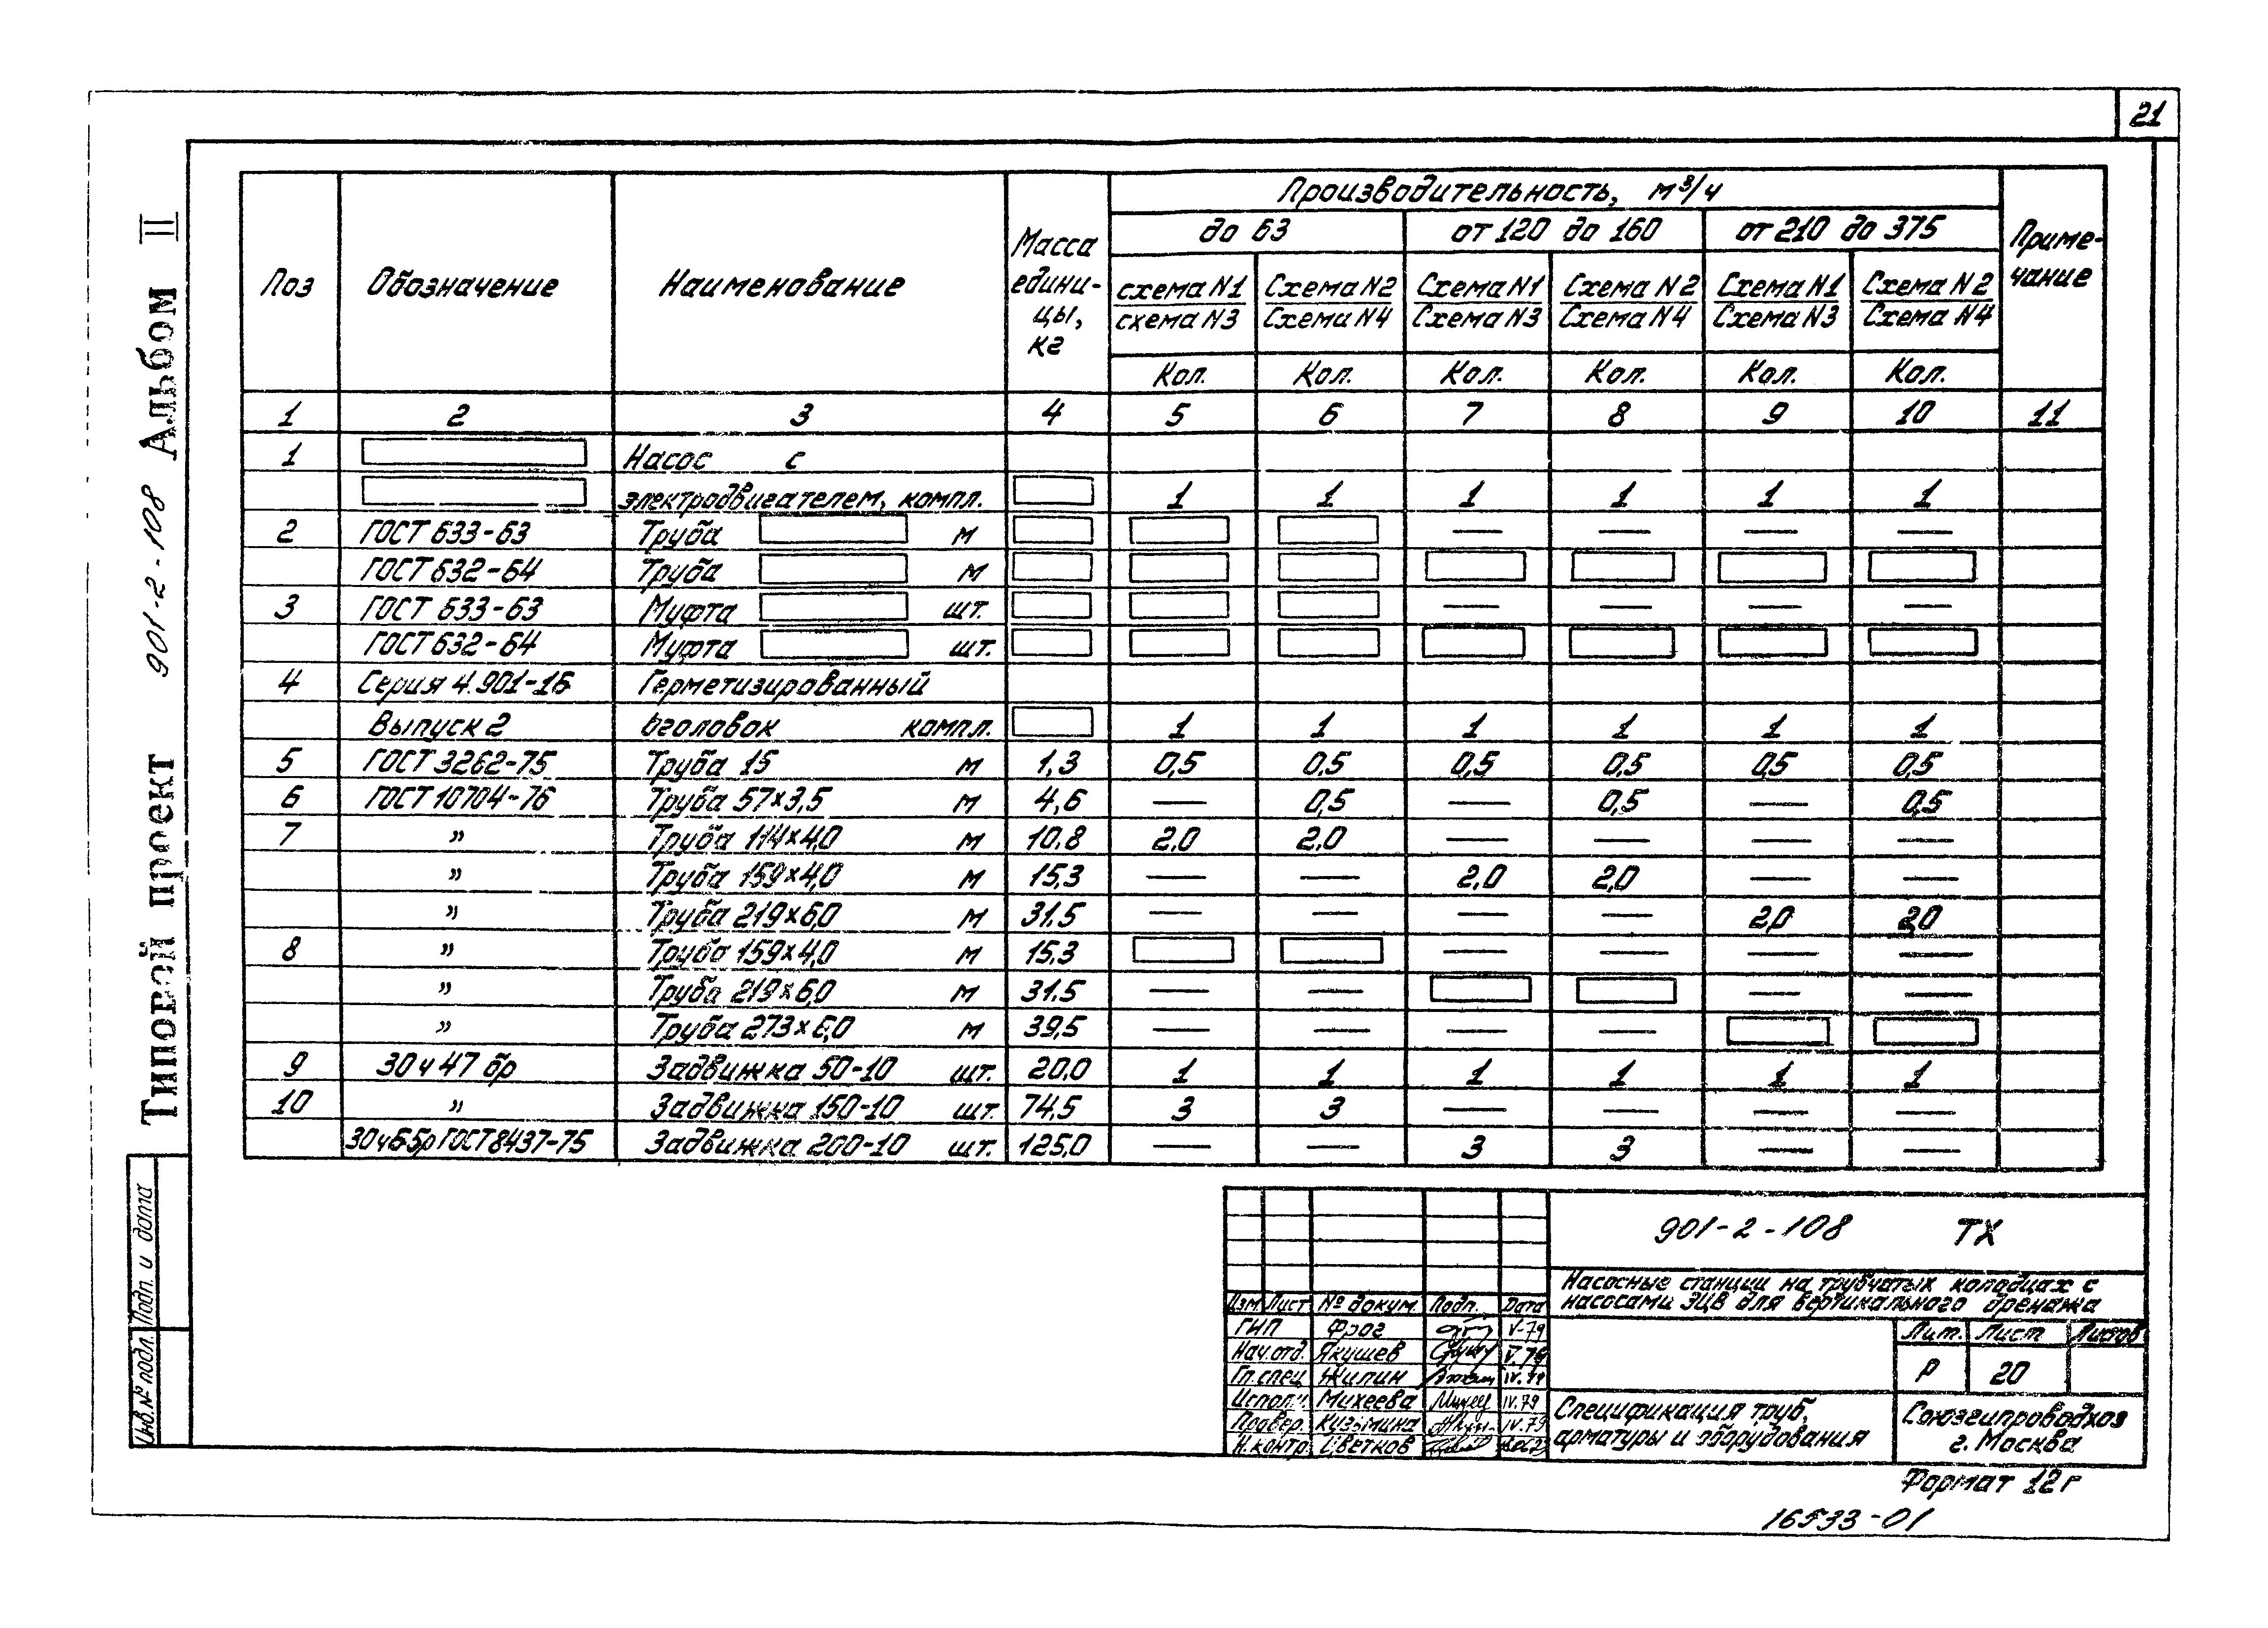 21
Типовой проект 901-2-108 Альбом II
Поз Обозначение Наименование Масса едини-цы, кг Производительность, м³/ч Приме-чание
до 63 от 120 до 160 от 210 до 375
схема N1 Схема N2 Схема N1 Схема N2 Схема N1 Схема N2
схема N3 Схема N4 Схема N3 Схема N4 Схема N3 Схема N4
Кол. Кол. Кол. Кол. Кол. Кол.
1 2 3 4 5 6 7 8 9 10 11
1 Насос с
электродвигателем, компл. 1 1 1 1 1 1
2 ГОСТ 633-63 Труба м — — — —
ГОСТ 632-64 Труба м
3 ГОСТ 633-63 Муфта шт. — — — —
ГОСТ 632-64 Муфта шт.
4 Серия 4.901-16 Герметизированный
Выпуск 2 оголовок компл. 1 1 1 1 1 1
5 ГОСТ 3262-75 Труба 15 м 1,3 0,5 0,5 0,5 0,5 0,5 0,5
6 ГОСТ 10704-76 Труба 57×3,5 м 4,6 — 0,5 — 0,5 — 0,5
7 " Труба 114×4,0 м 10,8 2,0 2,0 — — — —
" Труба 159×4,0 м 15,3 — — 2,0 2,0 — —
" Труба 219×6,0 м 31,5 — — — — 2,0 2,0
8 " Труба 159×4,0 м 15,3 — — — —
" Труба 219×6,0 м 31,5 — — — —
" Труба 273×6,0 м 39,5 — — — —
9 30ч47бр Задвижка 50-10 шт. 20,0 1 1 1 1 1 1
10 " Задвижка 150-10 шт. 74,5 3 3 — — — —
30ч6бр ГОСТ 8437-75 Задвижка 200-10 шт. 125,0 — — 3 3 — —
Подп. и дата
Инв.№ подл.
901-2-108 ТХ
Насосные станции на трубчатых колодцах с
насосами ЭЦВ для вертикального дренажа
Изм. Лист № докум. Подп. Дата
ГИП Фрог V-79
Нач.отд. Якушев V.79
Гл.спец. Жилин IV.79
Исполн. Михеева IV.79
Провер. Кузьмина IV.79
Н.контр. Цветков
Лит. Лист Листов
Р 20
Спецификация труб,
арматуры и оборудования
Союзгипроводхоз
г. Москва
Формат 12г
16533-01